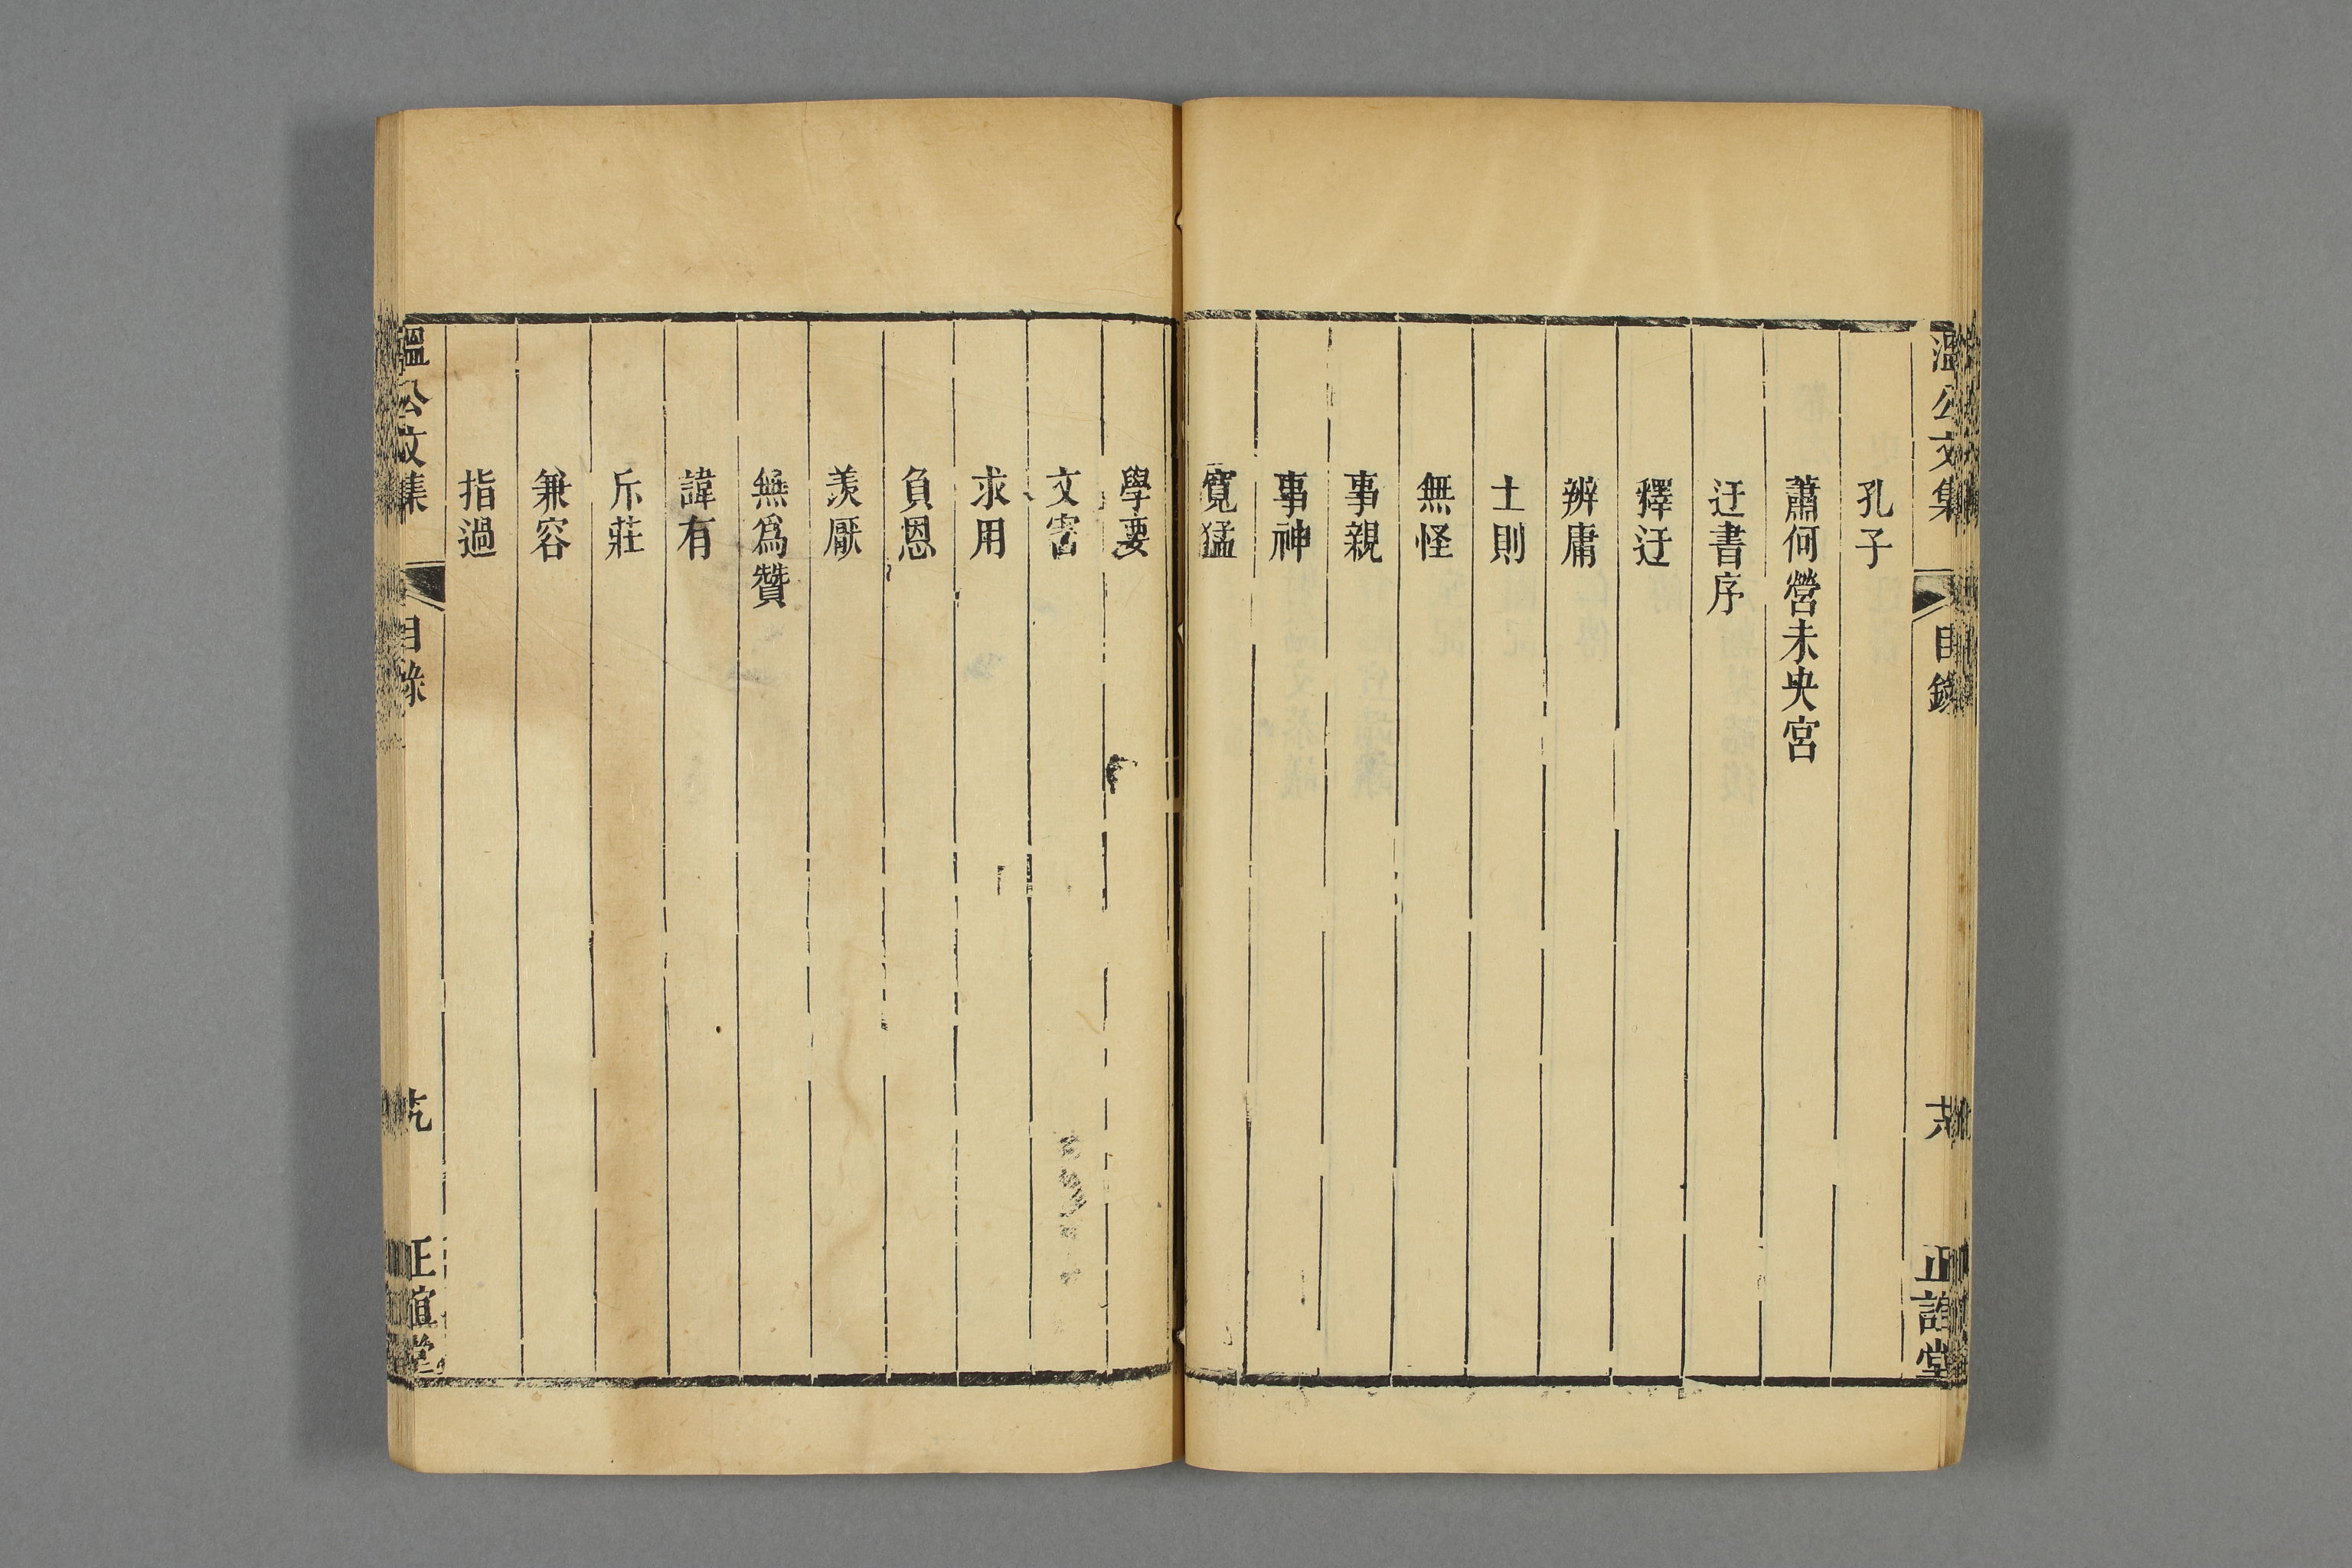 溫公文集
目錄
正誼堂
孔子
蕭何營未央宮
迂書序
釋迂
辨庸
士則
無怪
事親
事神
寬猛
學要
文害
求用
負恩
羨厭
無為贊
諱有
斥莊
兼容
指過
溫公文集
目錄
正誼堂